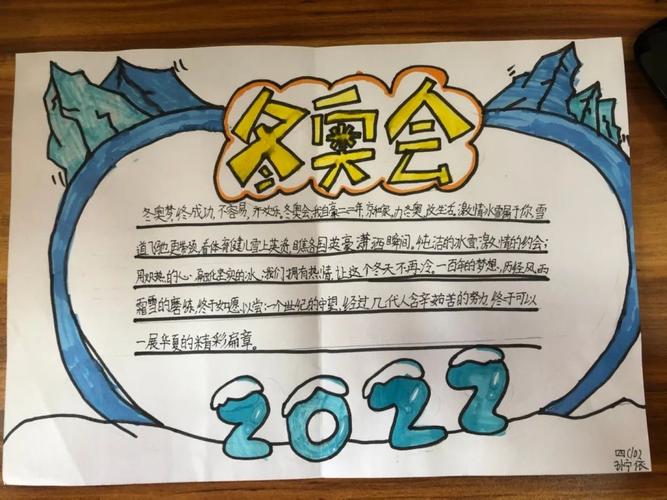 冬奥会
冬奥梦,终成功,不容易,齐欢乐。冬奥会,我自豪,二二年,京和家,办冬奥,改生活。激情冰雪属于你,雪
道飞驰更带强,看体育健儿雪上英姿,瞧各国英豪潇洒瞬间,纯洁的冰雪,激情的约会;
用炽热的心,融化坚实的冰,我们拥有热情,让这个冬天不再冷,一百年的梦想,历经风雨
霜雪的磨练,终于如愿以尝;一个世纪的守望,经过几代人含辛茹苦的努力,终于可以
一展华夏的精彩扁章。
2022
四